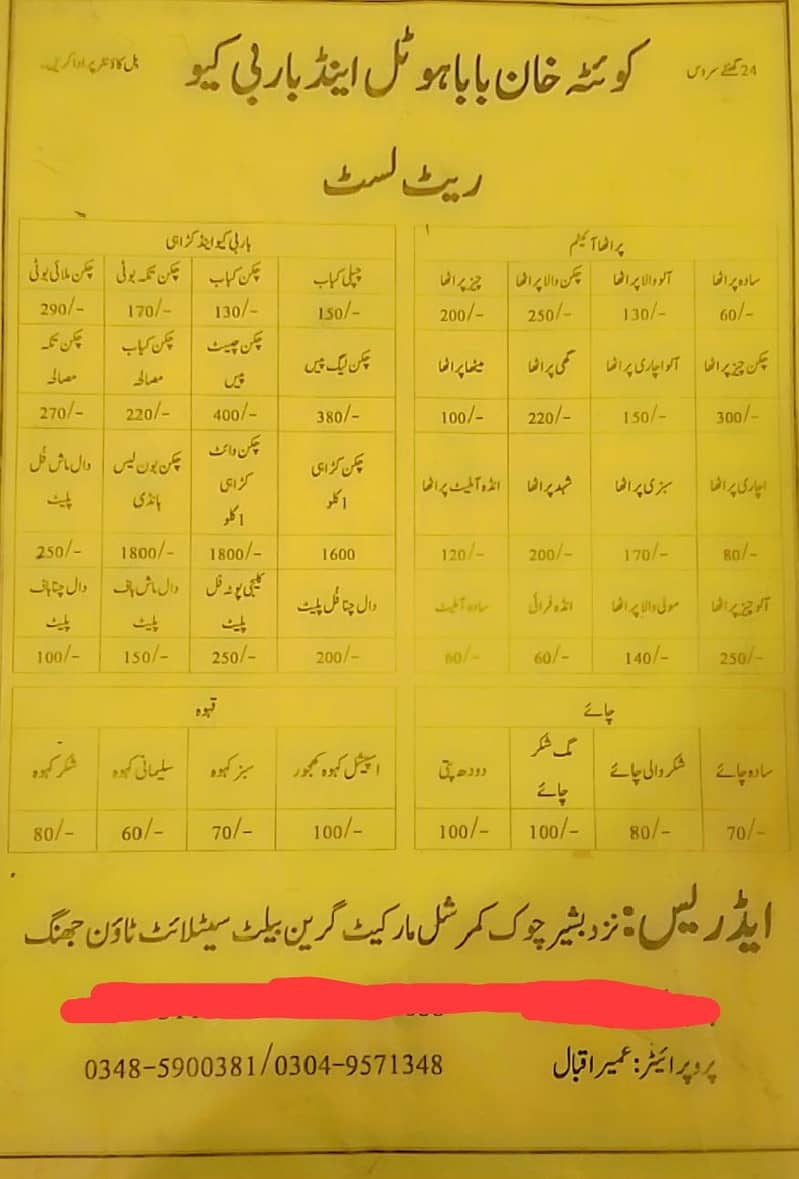 24 گھنٹے سروس
کوئٹہ خان بابا ہوٹل اینڈ باربی کیو
بل کاؤنٹر پر ادا کریں۔
ریٹ لسٹ
پراٹھا آئیٹم
سادہ پراٹھا آلو والا پراٹھا چکن والا پراٹھا چیز پراٹھا
60/- 130/- 250/- 200/-
چکن چیز پراٹھا آلو اچاری پراٹھا گھی پراٹھا میٹھا پراٹھا
300/- 150/- 220/- 100/-
اچاری پراٹھا سبزی پراٹھا شہد پراٹھا انڈہ آملیٹ پراٹھا
80/- 170/- 200/- 120/-
آلو چیز پراٹھا مولی والا پراٹھا انڈہ فرائی سادہ آملیٹ
250/- 140/- 60/- 60/-
باربی کیو اینڈ کڑاہی
چپلی کباب چکن کباب چکن تکہ بوٹی چکن ملائی بوٹی
150/- 130/- 170/- 290/-
چکن لیگ پیس چکن چیسٹ پیس چکن کباب مصالحہ چکن تکہ مصالحہ
380/- 400/- 220/- 270/-
چکن کڑاہی 1 کلو چکن وائٹ کڑاہی 1 کلو چکن بون لیس ہانڈی دال ماش فُل پلیٹ
1600 1800/- 1800/- 250/-
دال چنا فُل پلیٹ کلیجی پوٹہ فل پلیٹ دال ماش ہاف پلیٹ دال چنا ہاف پلیٹ
200/- 250/- 150/- 100/-
چائے
سادہ چائے شکر والی چائے مگ شکر چائے دودھ پتی
70/- 80/- 100/- 100/-
قہوہ
اسپیشل کہوہ کھجور سبز کہوہ سلیمانی کہوہ شکر کہوہ
100/- 70/- 60/- 80/-
ایڈریس: نزد بشیر چوک کمرشل مارکیٹ گرین بیلٹ سیٹلائٹ ٹاؤن جھنگ
پروپرائیٹر: عمیر اقبال 0348-5900381/0304-9571348